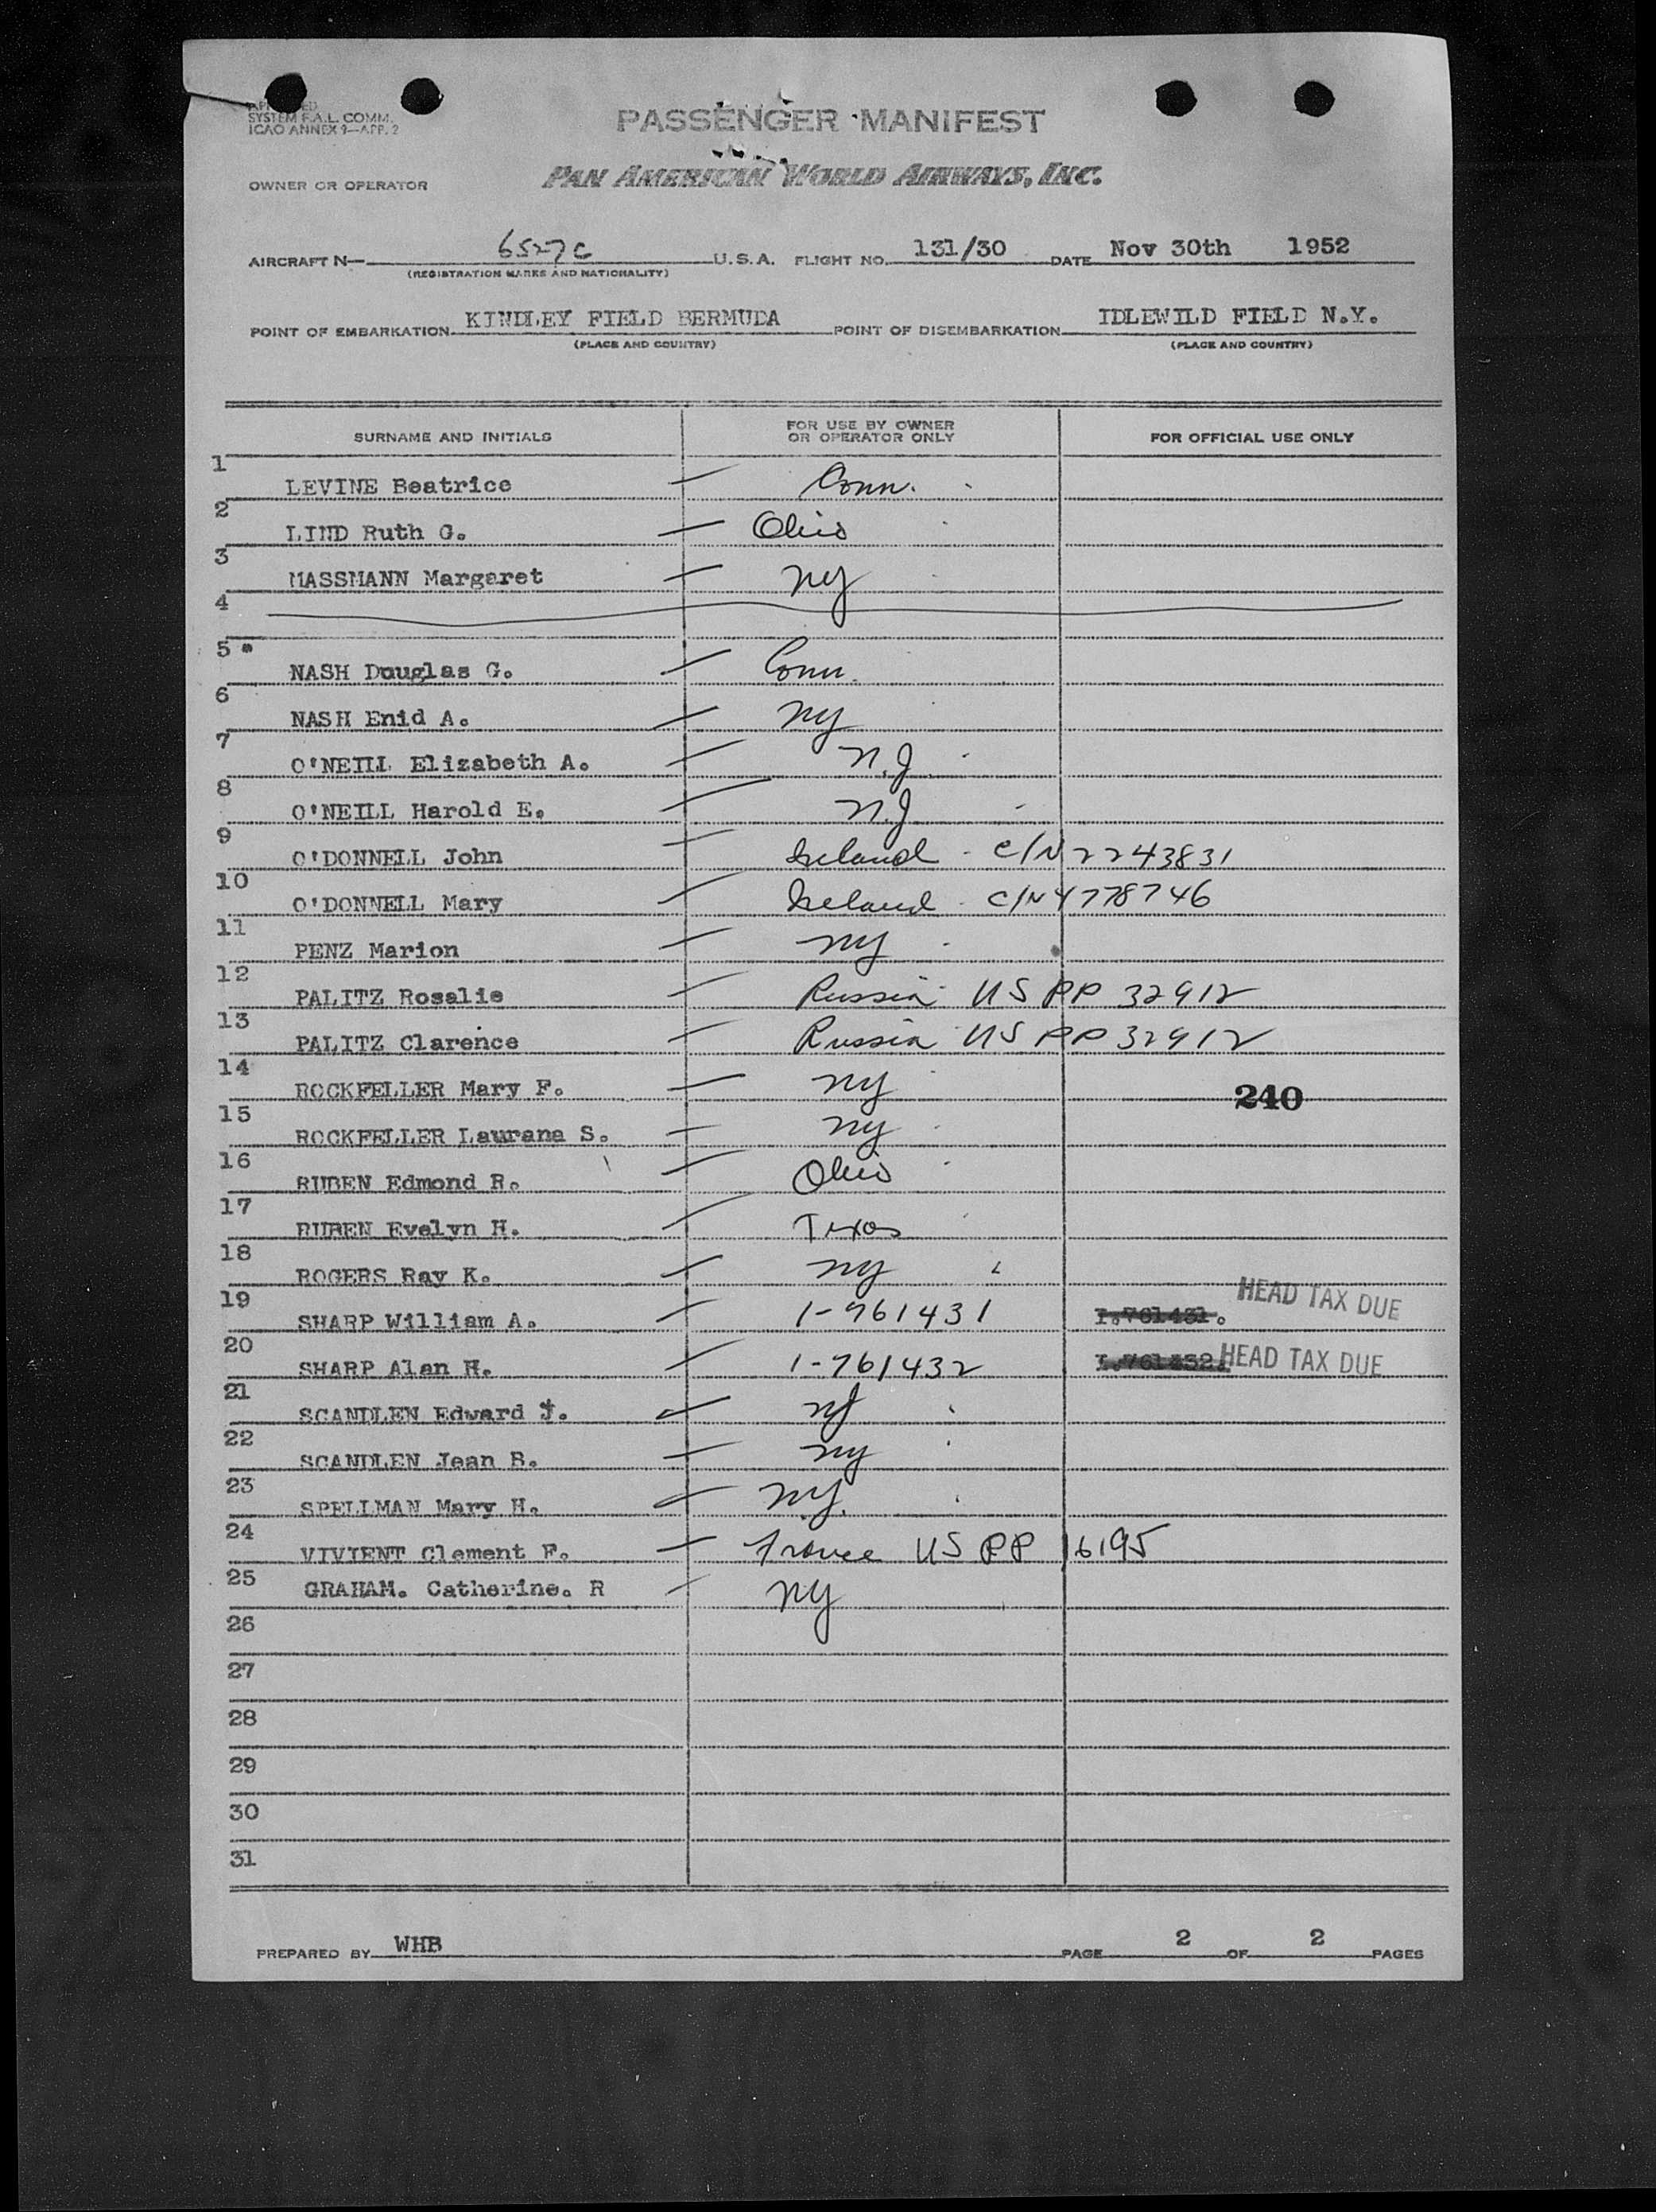 APPROVED
SYSTEM F.A.L. COMM.
ICAO ANNEX 9—APP. 2
PASSENGER MANIFEST
OWNER OR OPERATOR PAN AMERICAN WORLD AIRWAYS, INC.
AIRCRAFT N— 6527C U.S.A. FLIGHT NO. 131/30 DATE Nov 30th 1952
(REGISTRATION MARKS AND NATIONALITY)
POINT OF EMBARKATION KINDLEY FIELD BERMUDA POINT OF DISEMBARKATION IDLEWILD FIELD N.Y.
(PLACE AND COUNTRY) (PLACE AND COUNTRY)
SURNAME AND INITIALS FOR USE BY OWNER OR OPERATOR ONLY FOR OFFICIAL USE ONLY
1 LEVINE Beatrice — Conn.
2 LIND Ruth G. — Ohio
3 MASSMANN Margaret — NY
4
5 NASH Douglas G. — Conn.
6 NASH Enid A. — NY
7 O'NEILL Elizabeth A. — N.J.
8 O'NEILL Harold E. — N.J
9 O'DONNELL John — Ireland - C/N 2243831
10 O'DONNELL Mary — Ireland - C/N 4778746
11 PENZ Marion — NY
12 PALITZ Rosalie — Russia US PP 32912
13 PALITZ Clarence — Russia US PP 32912
14 ROCKFELLER Mary F. — NY 240
15 ROCKFELLER Laurana S. — NY
16 RUBEN Edmond R. — Ohio
17 RUBEN Evelyn H. — Texas
18 ROGERS Ray K. — NY
19 SHARP William A. — 1-761431 I.761431. HEAD TAX DUE
20 SHARP Alan H. — 1-761432 I.761432. HEAD TAX DUE
21 SCANDLEN Edward J. — NJ
22 SCANDLEN Jean B. — NY
23 SPELLMAN Mary H. — NY.
24 VIVIENT Clement F. — France US PP 16195
25 GRAHAM. Catherine. R — NY
26
27
28
29
30
31
PREPARED BY WHB PAGE 2 OF 2 PAGES